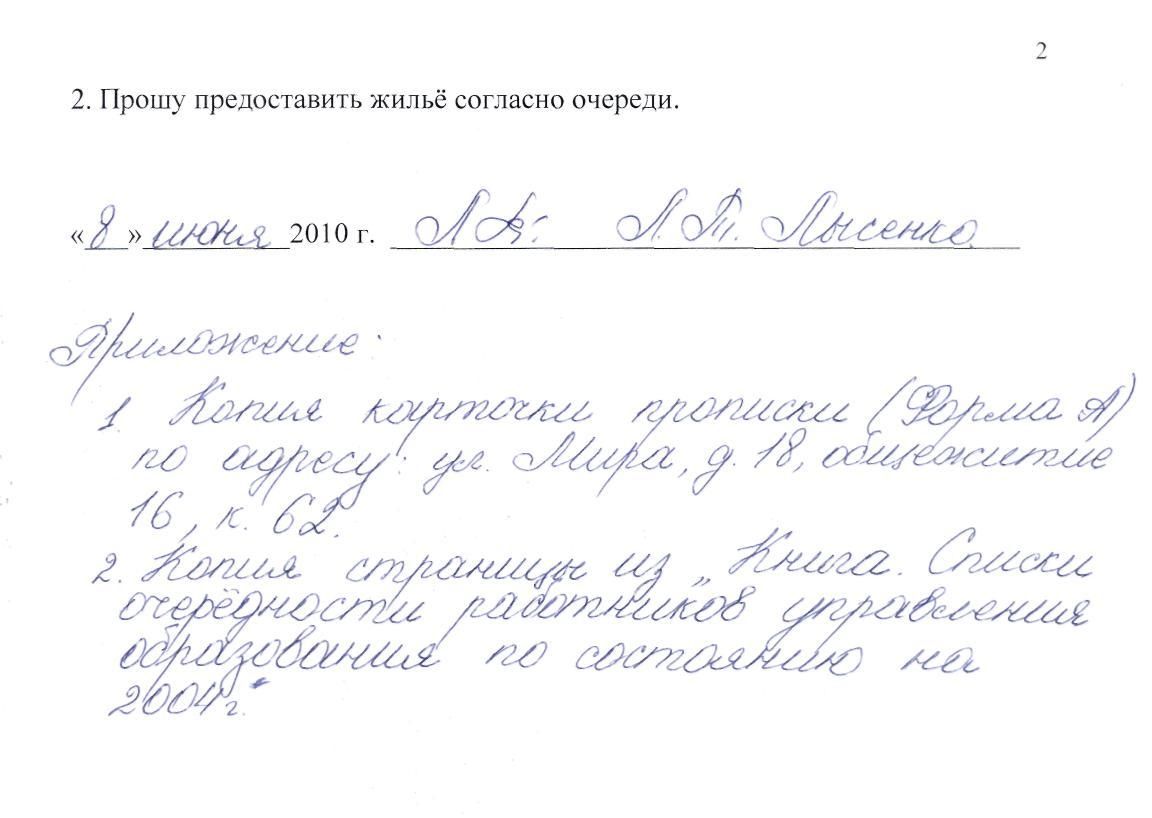 2
2. Прошу предоставить жильё согласно очереди.
«8» июня 2010 г. Л. Т. Лысенко.
Приложение:
1. Копия карточки прописки (Форма А)
по адресу: ул. Мира, д. 18, общежитие
16, к. 62.
2. Копия страницы из „Книга. Списки
очерёдности работников управления
образования по состоянию на
2004г.“